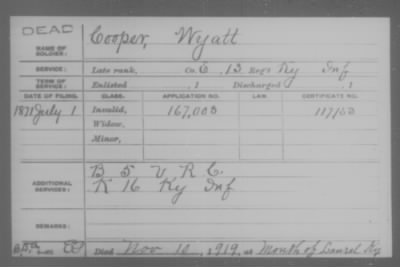 DEAD
NAME OF SOLDIER: Cooper, Wyatt
SERVICE: Late rank, Co. E, 13 Reg't Ky Inf
TERM OF SERVICE: Enlisted , 1 Discharged , 1
DATE OF FILING. CLASS. APPLICATION NO. LAW. CERTIFICATE NO.
1871 July 1 Invalid, 167,003
Widow,
Minor,
ADDITIONAL SERVICES: B 5 V R C.
K 16 Ky Inf
REMARKS:
Died Nov 10, 1919, at Mouth of Laurel Ky